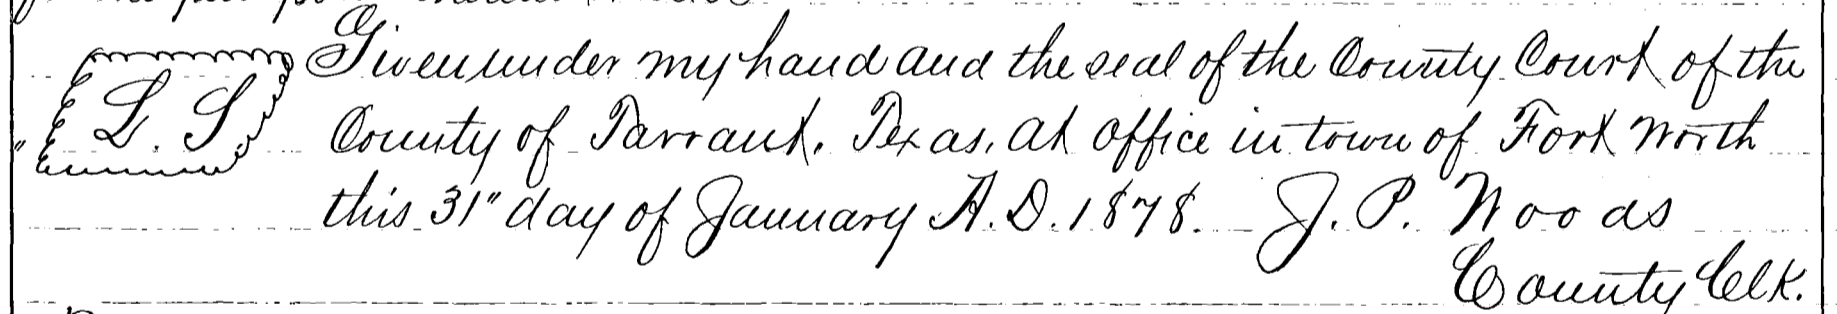 Given under my hand and the seal of the County Court of the
L. S. County of Tarrant. Texas, at office in town of Fort Worth
this 31" day of January A.D. 1878. J. P. Woods
County Clk.